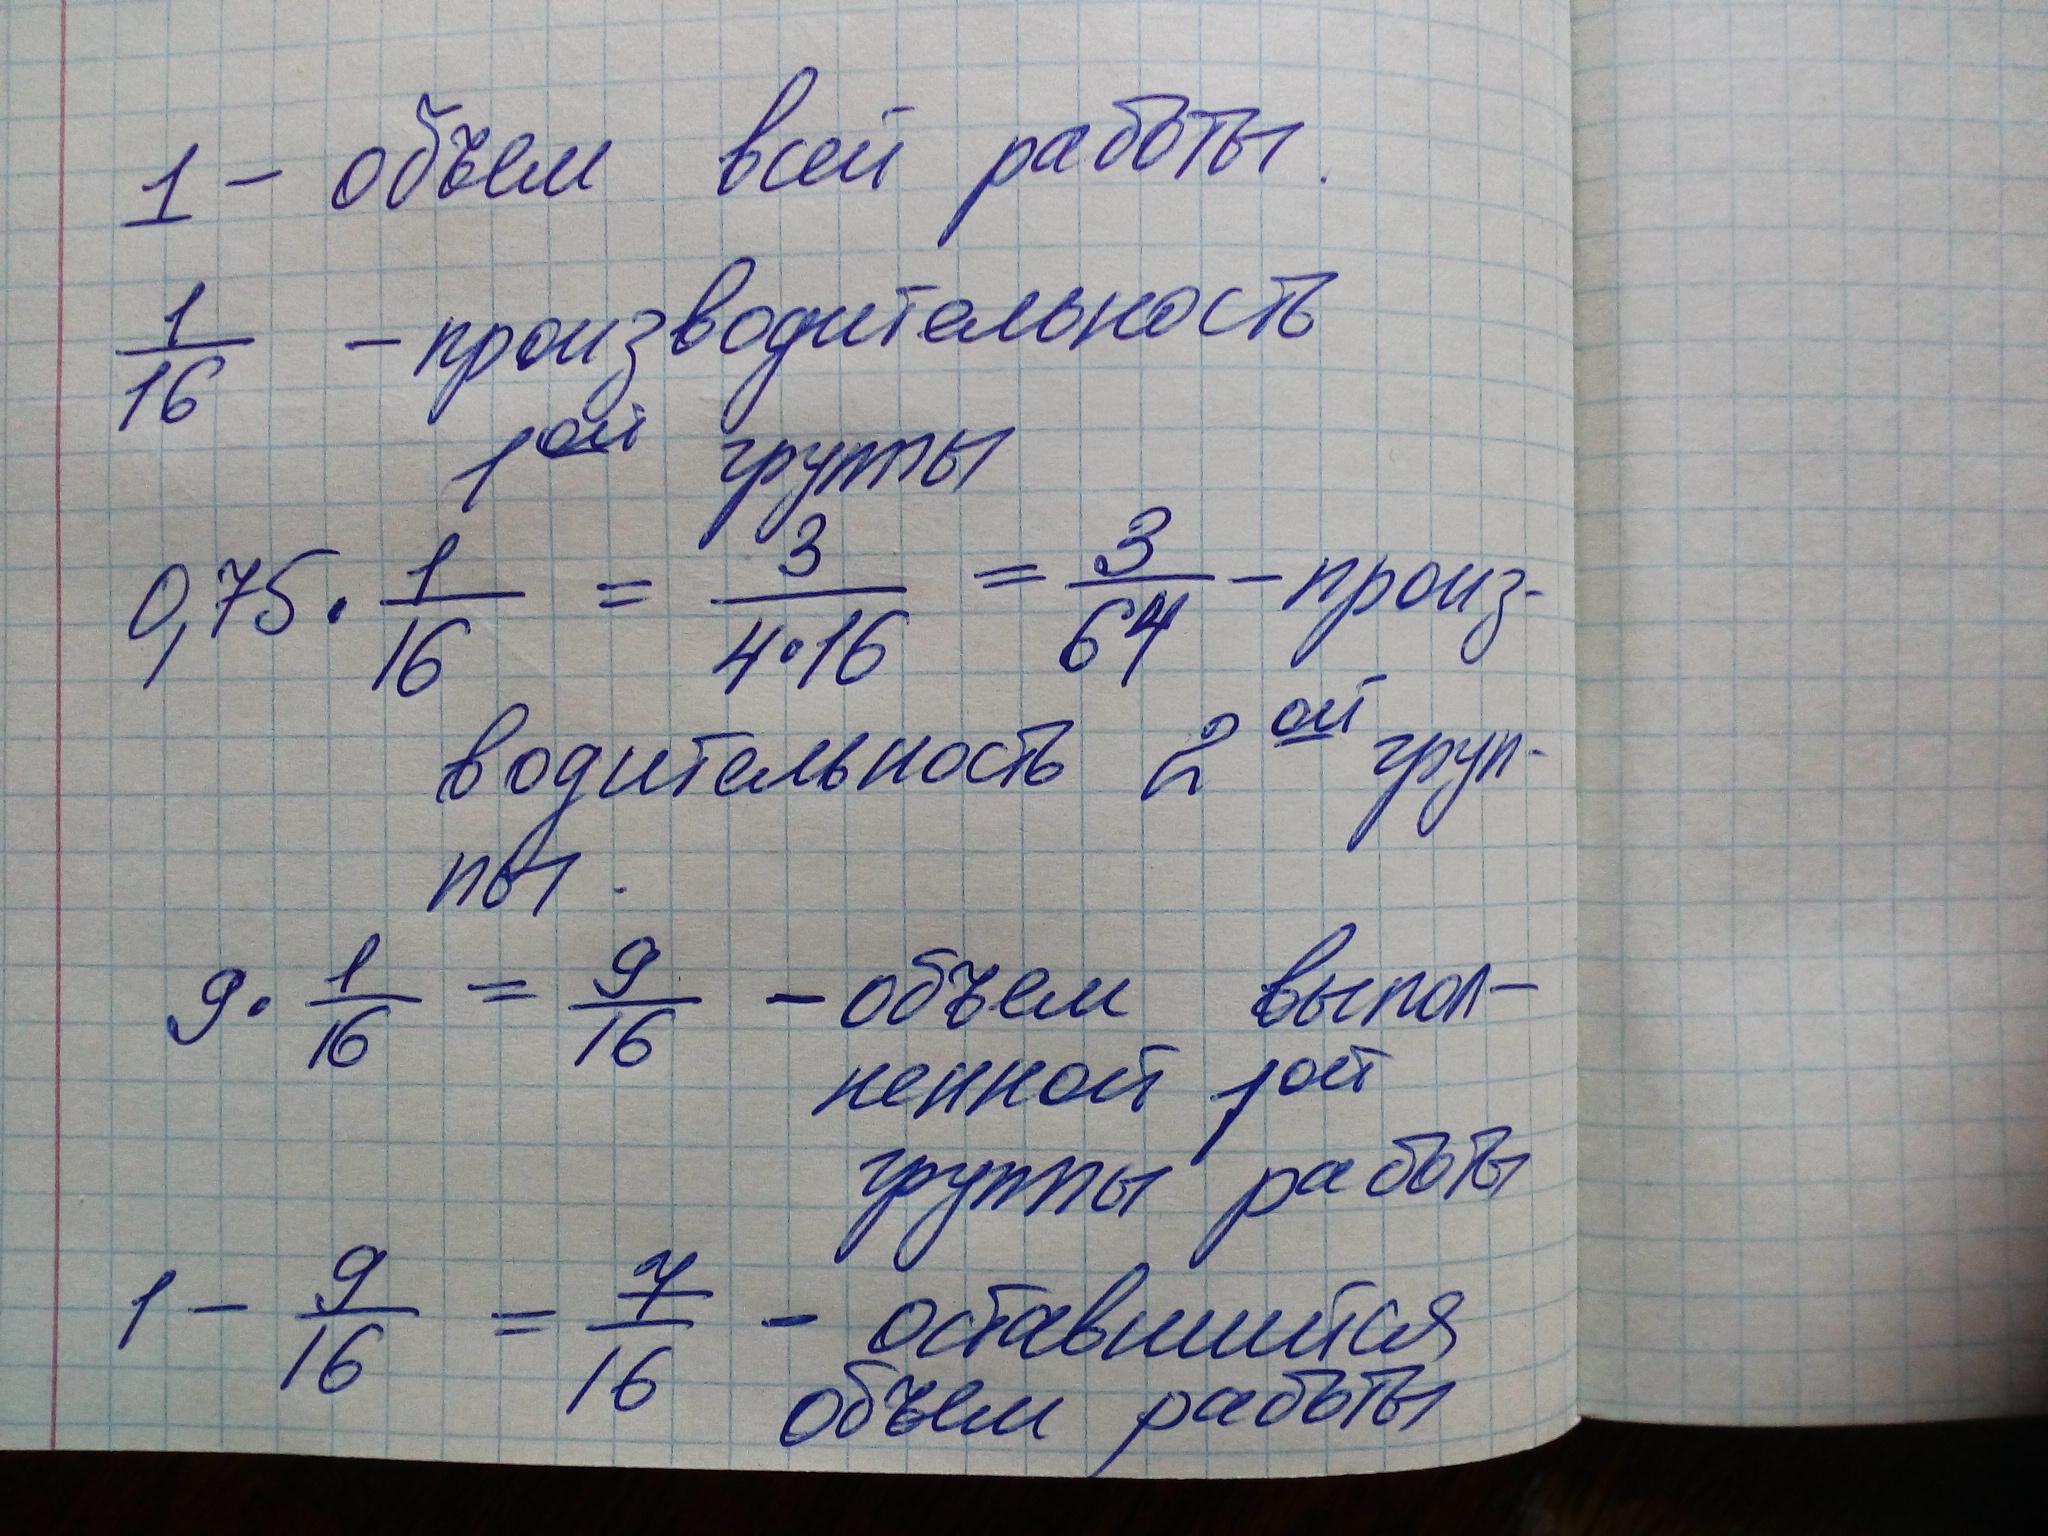 1 - объем всей работы.
1/16 - производительность
1ой группы
0,75 · 1/16 = 3/(4·16) = 3/64 - произ-
водительность 2ой груп-
пы.
9 · 1/16 = 9/16 - объем выпол-
ненной 1ой
группы работы
1 - 9/16 = 7/16 - оставшийся
объем работы